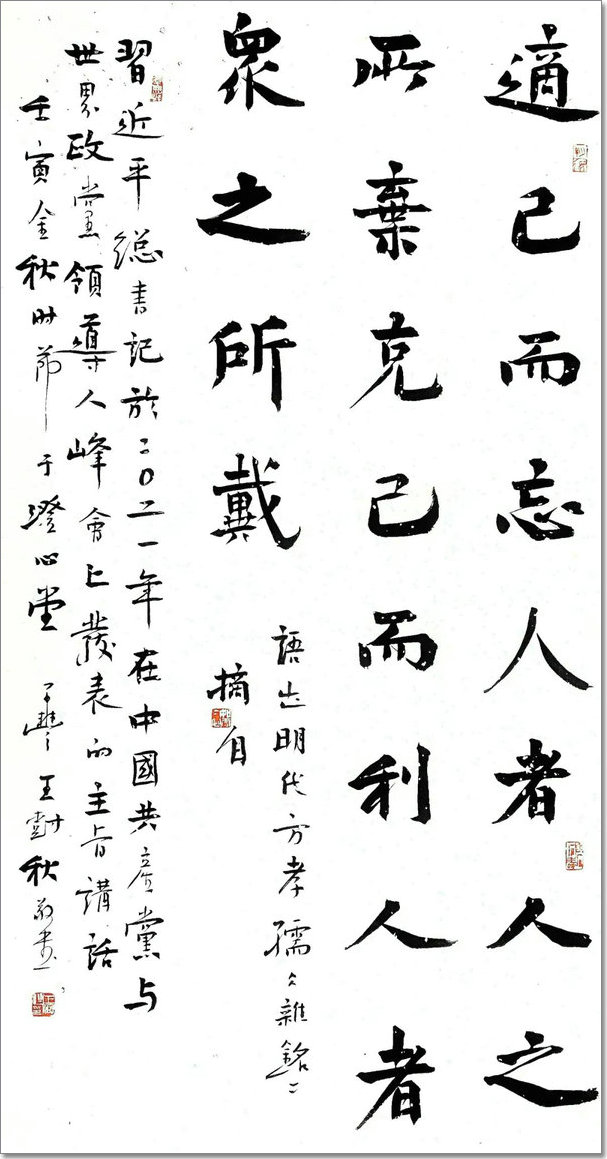 適己而忘人者人之
所棄克己而利人者
眾之所戴
語出明代方孝孺《雜銘》
摘自
習近平總書記於二〇二一年在中國共產黨与
世界政黨領導人峰會上發表的主旨講話
壬寅金秋时節于澄心堂 王封秋敬書